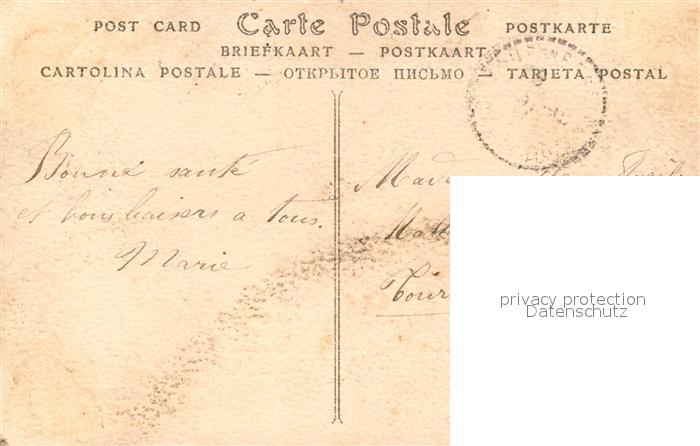 POST CARD Carte Postale POSTKARTE
BRIEFKAART — POSTKAART
CARTOLINA POSTALE — ОТКРЫТОЕ ПИСЬМО — TARJETA POSTAL
Bonne santé
et bons baisers a tous.
Marie
privacy protection
Datenschutz